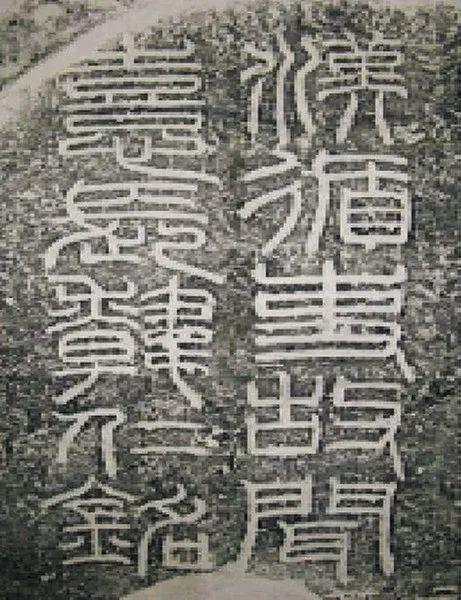 漢循吏故聞
憙長韓仁銘